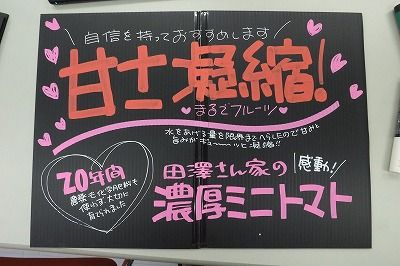 自信を持っておすすめします
甘さ凝縮!
まるでフルーツ
水をあげる量を限界までへらしたので甘みと
旨みがギューーッと凝縮!!
20年間
農薬も化学肥料も
使わず大切に
育てられました
田澤さん家の
感動!
濃厚ミニトマト